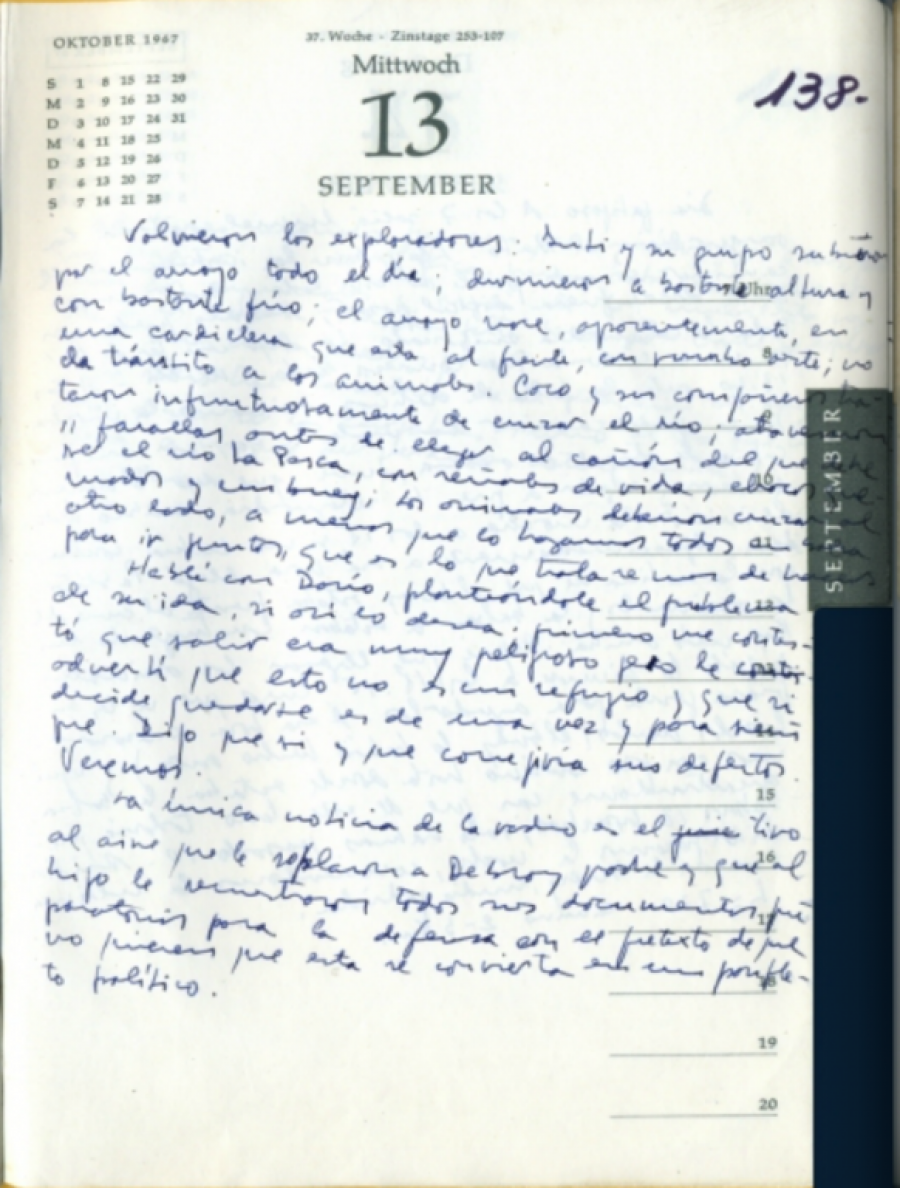 OKTOBER 1967
S 1 8 15 22 29
M 2 9 16 23 30
D 3 10 17 24 31
M 4 11 18 25
D 5 12 19 26
F 6 13 20 27
S 7 14 21 28
37. Woche - Zinstage 253-107
Mittwoch
13
SEPTEMBER
138.
Volvieron los exploradores: Inti y su grupo subieron
por el arroyo todo el día; durmieron a bastante altura y
con bastante frío; el arroyo nace, aparentemente, en
una cordillera que está al frente, con rumbo oeste; no
da tránsito a los animales. Coco y sus compañeros tra-
taron infructuosamente de cruzar el río; atravesaron
11 farallas antes de llegar al cañón del que debe
ser el río La Pesca, con señales de vida, chacos que-
mados y un buey; los animales deberían cruzar al
otro lado, a menos que lo hagamos todos en balsa
para ir juntos, que es lo que trataremos de hacer.
Hablé con Darío, planteándole el problema
de su ida, si así lo desea; primero me contes-
tó que salir era muy peligroso pero le
advertí que esto no es un refugio y que si
decide quedarse es de una vez y para siem
pre. Dijo que sí y que corregiría sus defectos.
Veremos.
La única noticia de la radio es el tiro
al aire que le soplaron a Debray padre y que al
hijo le secuestraron todos sus documentos pre
paratorios para la defensa con el pretexto de que
no quieren que esta se convierta en un panfle-
to político.
7 Uhr
8
9
10
11
12
13
15
16
17
18
19
20
SEPTEMBER